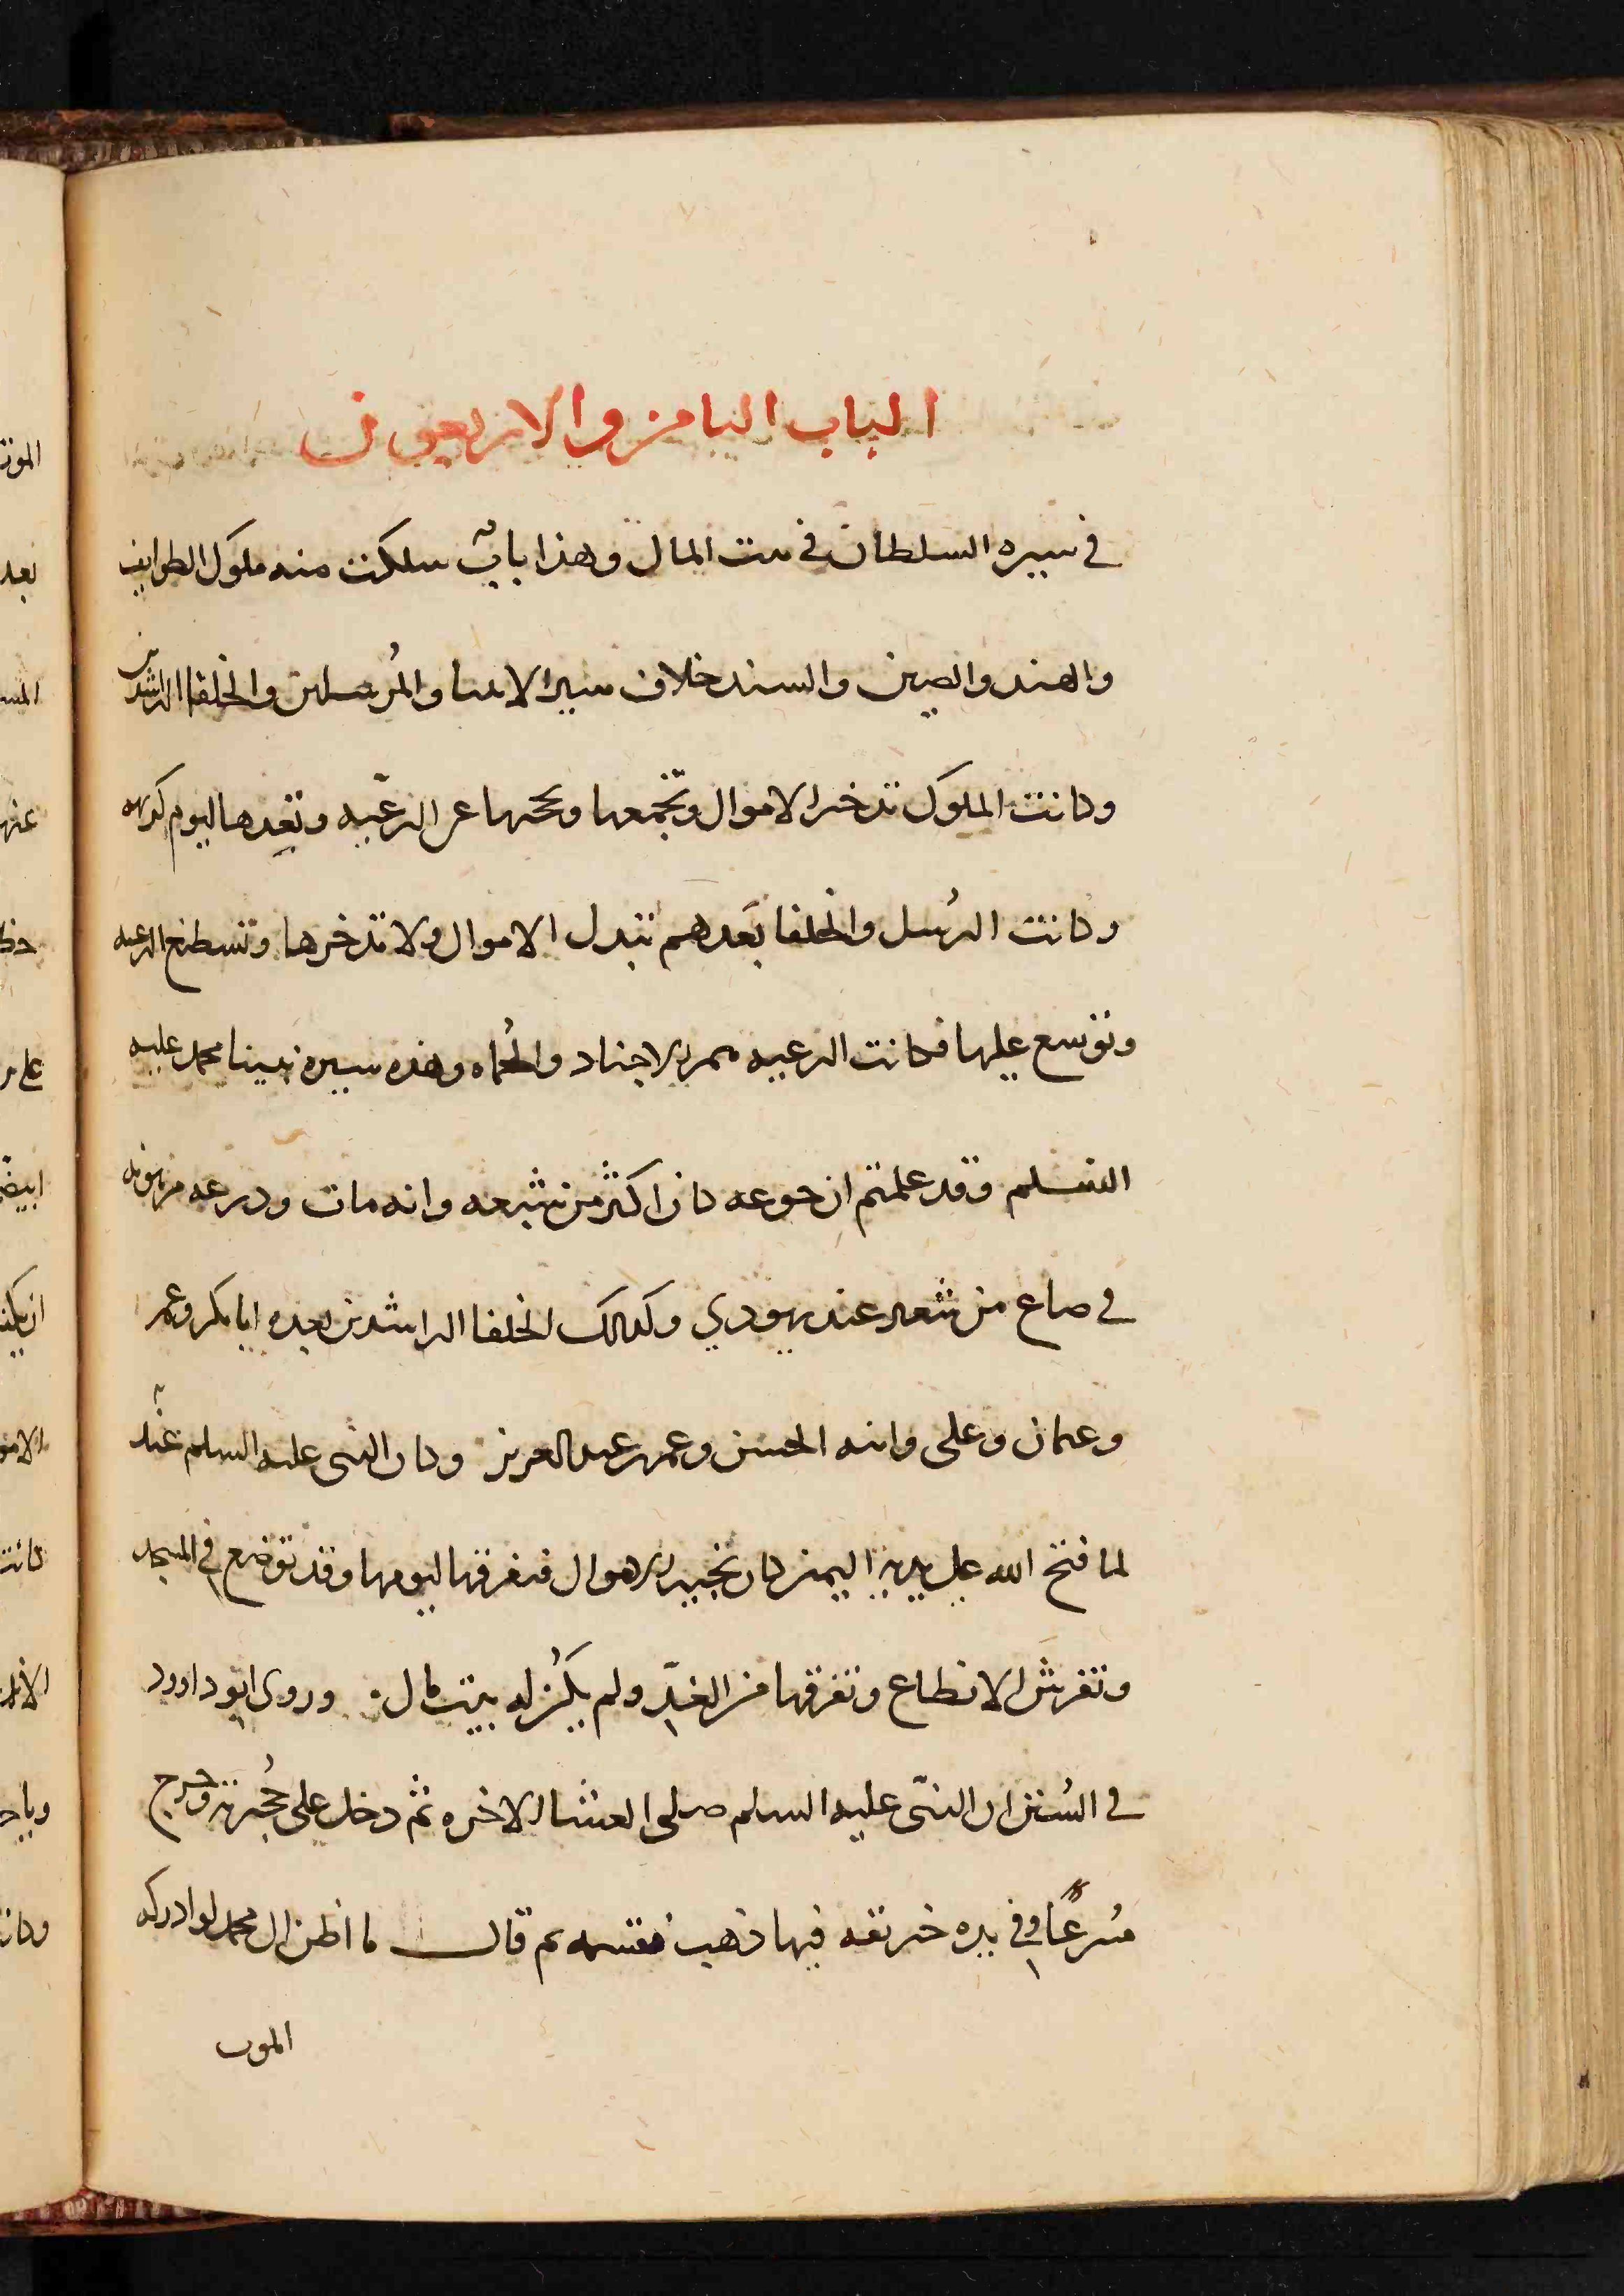 الباب الثامن والاربعون
في سيره السلطان في بيت المال وهذا باب سلكت منه ملوك الطوايف
والهند والصين والسند خلاف سير الانبيا والمُرسلين والخلفا الراشدين
وكانت الملوك تدخر الاموال وتجمعها وتحجبها عن الرعيّه وتعدها ليوم كريهه
وكانت الرُسل والخلفا بَعدهم تبدل الاموال ولا تدخرها وتسطنع الرعيه
وتوسع عليها فكانت الرعيه هم الاجناد والحُماه وهذه سيرة نبينا محمد عليه
السلم وقد علمتم ان جوعه كان اكثر من شبعه وانه مات ودرعه مرهونه
في صاع من شعير عند يهودي وكذلك الخلفا الراشدين بعده ابا بكر وعمر
وعثمان وعلى وابنه الحسن وعمر بن عبد العزيز وكان النبى عليه السلم
لما فتح الله عليه اليمن كان تجيه الاموال فيفرقها ليومها وقد توضع في المسجد
وتفرش الانطاع وتفرقها من الغدِ ولم يكُن له بيت مال وروى ابو داوود
في السُنن ان النبّى عليه السلم صلى العشا الاخره ثم دخل على حُجرته وخرج
مُسرعًا وفي يده خريقه فيها ذهب فقسمه ثم قال ما اظن ال محمد لو ادركه
الموت
المونت
بعد
عنه